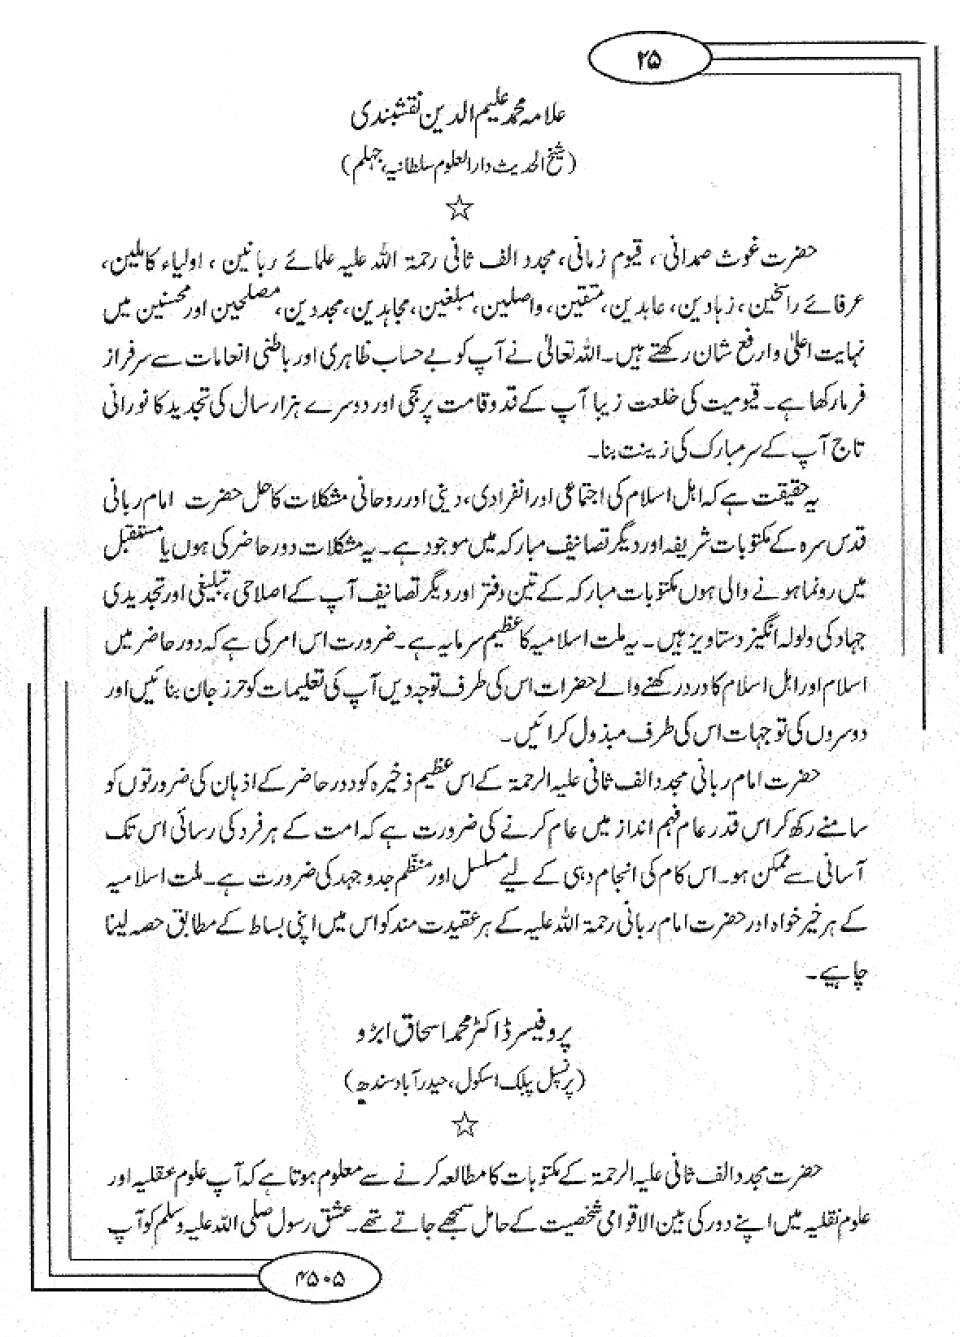 ۲۵
علامہ محمد علیم الدین نقشبندی
(شیخ الحدیث دارالعلوم سلطانیہ، جہلم)
حضرت غوث صمدانی، قیوم زمانی، مجدد الف ثانی رحمۃ اللہ علیہ علمائے ربانیین، اولیاء کاملین،
عرفائے راسخین، زہادین، عابدین، متقین، واصلین، مبلغین، مجاہدین، مجددین، مصلحین اور محسنین میں
نہایت اعلیٰ وارفع شان رکھتے ہیں۔ اللہ تعالیٰ نے آپ کو بے حساب ظاہری اور باطنی انعامات سے سرفراز
فرما رکھا ہے۔ قیومیت کی خلعت زیبا آپ کے قد و قامت پر سجی اور دوسرے ہزار سال کی تجدید کا نورانی
تاج آپ کے سر مبارک کی زینت بنا۔
یہ حقیقت ہے کہ اہل اسلام کی اجتماعی اور انفرادی، دینی اور روحانی مشکلات کا حل حضرت امام ربانی
قدس سرہ کے مکتوبات شریفہ اور دیگر تصانیف مبارکہ میں موجود ہے۔ یہ مشکلات دور حاضر کی ہوں یا مستقبل
میں رونما ہونے والی ہوں مکتوبات مبارکہ کے تین دفتر اور دیگر تصانیف آپ کے اصلاحی، تبلیغی اور تجدیدی
جہاد کی ولولہ انگیز دستاویز ہیں۔ یہ ملت اسلامیہ کا عظیم سرمایہ ہے۔ ضرورت اس امر کی ہے کہ دور حاضر میں
اسلام اور اہل اسلام کا درد رکھنے والے حضرات اس کی طرف توجہ دیں آپ کی تعلیمات کو حرز جان بنائیں اور
دوسروں کی توجہات اس کی طرف مبذول کرائیں۔
حضرت امام ربانی مجدد الف ثانی علیہ الرحمۃ کے اس عظیم ذخیرہ کو دور حاضر کے اذہان کی ضرورتوں کو
سامنے رکھ کر اس قدر عام فہم انداز میں عام کرنے کی ضرورت ہے کہ امت کے ہر فرد کی رسائی اس تک
آسانی سے ممکن ہو۔ اس کام کی انجام دہی کے لیے مسلسل اور منظّم جدوجہد کی ضرورت ہے۔ ملت اسلامیہ
کے ہر خیر خواہ اور حضرت امام ربانی رحمۃ اللہ علیہ کے ہر عقیدت مند کو اس میں اپنی بساط کے مطابق حصہ لینا
چاہیے۔
پروفیسر ڈاکٹر محمد اسحاق ابڑو
(پرنسپل پبلک اسکول، حیدرآباد سندھ)
حضرت مجدد الف ثانی علیہ الرحمۃ کے مکتوبات کا مطالعہ کرنے سے معلوم ہوتا ہے کہ آپ علوم عقلیہ اور
علوم نقلیہ میں اپنے دور کی بین الاقوامی شخصیت کے حامل سمجھے جاتے تھے۔ عشق رسول صلی اللہ علیہ وسلم کو آپ
۴۵۰۵